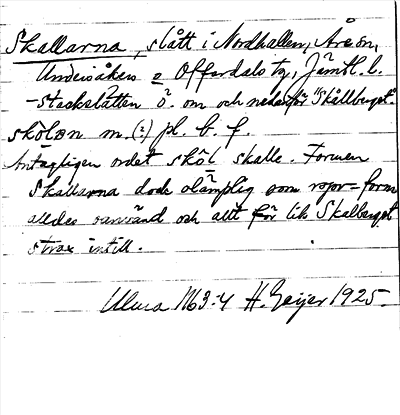 Skallarna, slått i Nordhallen, Åre sn,
Undersåkers o Offerdals tg, Jämtl. l.
-Stackslåtten ö. om och nedanför "Skållberget".
skölɒn m.(?) pl. b. f.
Antagligen ordet sköl skalle. Formen
Skallarna dock olämplig som
alldes oanvänd och allt för lik Skalberget
strax intill.
Ulma 1163:4 H. Geijer 1925.